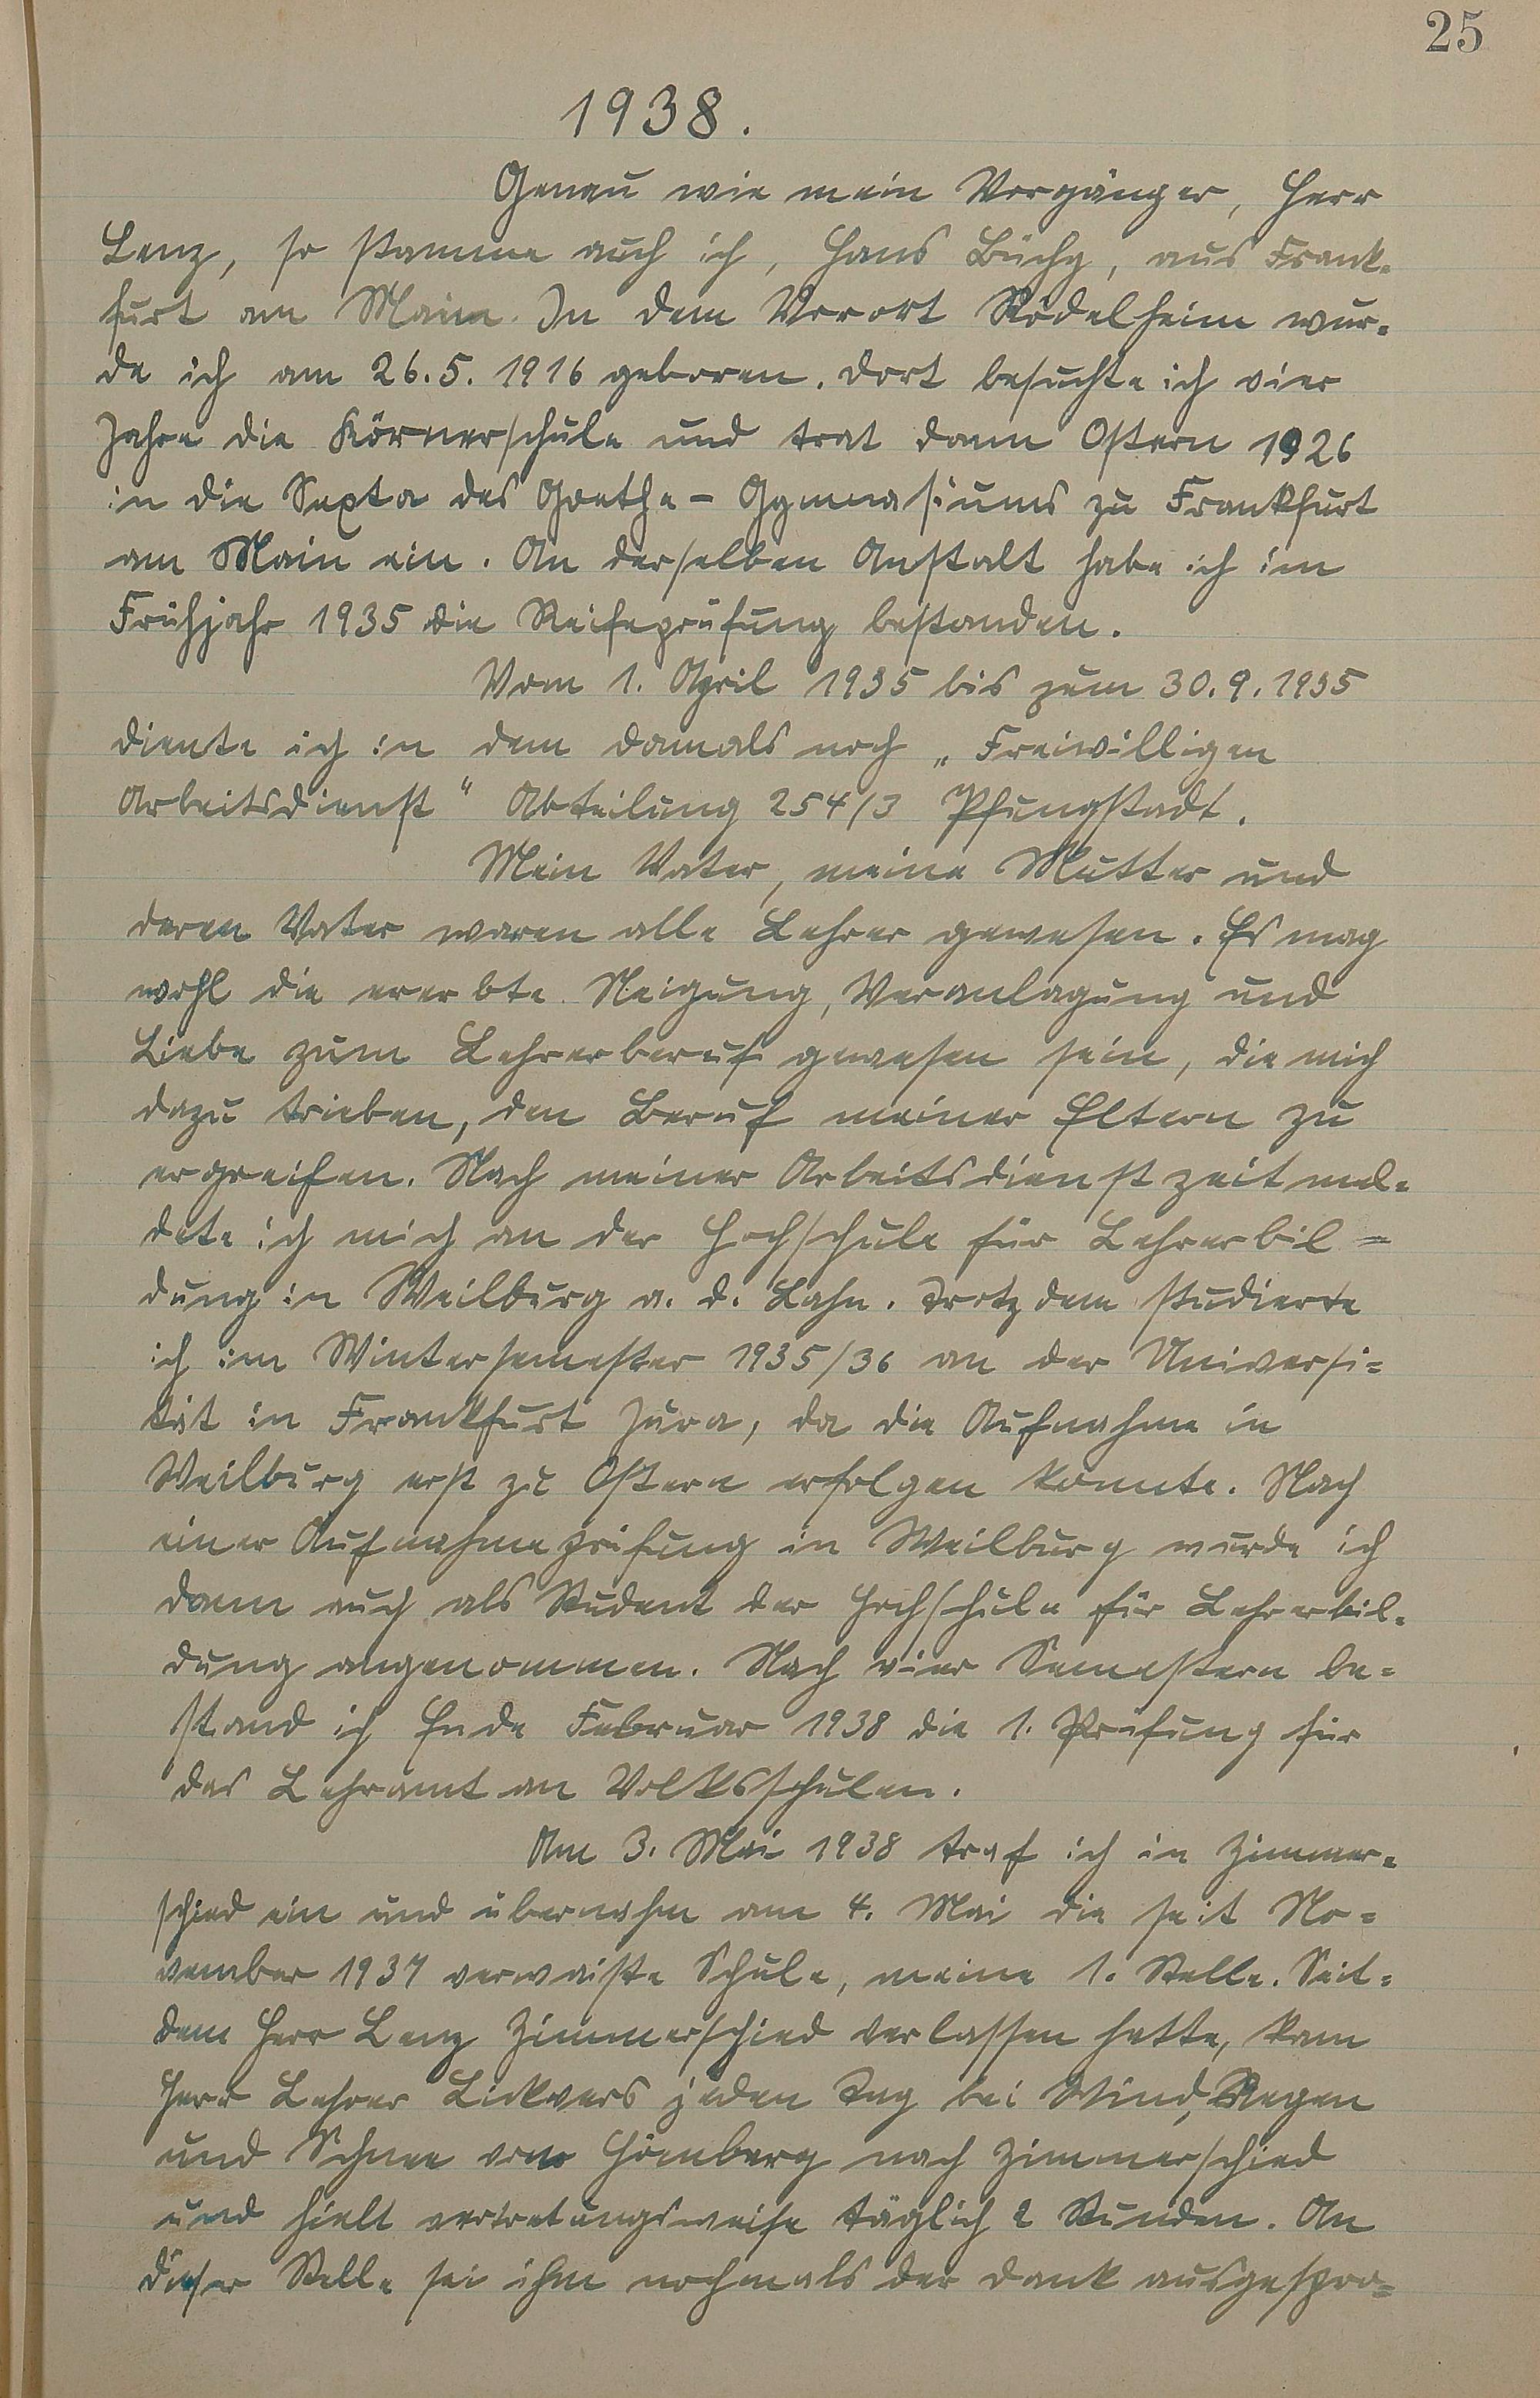 25
1938.
Genau wie mein Vorgänger, Herr
Lenz, so stamme auch ich, Hans Büchy, aus Frank-
furt am Main. In dem Vorort Rödelheim wur-
de ich am 26.5.1916 geboren. Dort besuchte ich vier
Jahre die Körnerschule und trat dann Ostern 1926
in die Sexta des Goethe-Gymnasiums zu Frankfurt
am Main ein. An derselben Anstalt habe ich im
Frühjahr 1935 die Reifeprüfung bestanden.
Vom 1. April 1935 bis zum 30.9.1935
diente ich in dem damals noch „Freiwilligen
Arbeitsdienst“ Abteilung 254/3 Pfungstadt.
Mein Vater, meine Mutter und
deren Vater waren alle Lehrer gewesen. Es mag
wohl die ererbte Neigung, Veranlagung und
Liebe zum Lehrerberuf gewesen sein, die mich
dazu trieben, den Beruf meiner Eltern zu
ergreifen. Nach meiner Arbeitsdienstzeit mel-
dete ich mich an der Hochschule für Lehrerbil-
dung in Weilburg a. d. Lahn. Trotzdem studierte
ich im Wintersemester 1935/36 an der Universi-
tät in Frankfurt Jura, da die Aufnahme in
Weilburg erst zu Ostern erfolgen konnte. Nach
einer Aufnahmeprüfung in Weilburg wurde ich
dann auch als Student der Hochschule für Lehrerbil-
dung angenommen. Nach vier Semestern be-
stand ich Ende Februar 1938 die 1. Prüfung für
das Lehramt an Volksschulen.
Am 3. Mai 1938 traf ich in Zimmer-
schied ein und übernahm am 4. Mai die seit No-
vember 1937 verwaiste Schule, meine 1. Stelle. Seit-
dem Herr Lenz Zimmerschied verlassen hatte, kam
Herr Lehrer Lickvers jeden Tag bei Wind, Regen
und Schnee von Hömberg nach Zimmerschied
und hielt vertretungsweise täglich 2 Stunden. An
dieser Stelle sei ihm nochmals der Dank ausgespro-